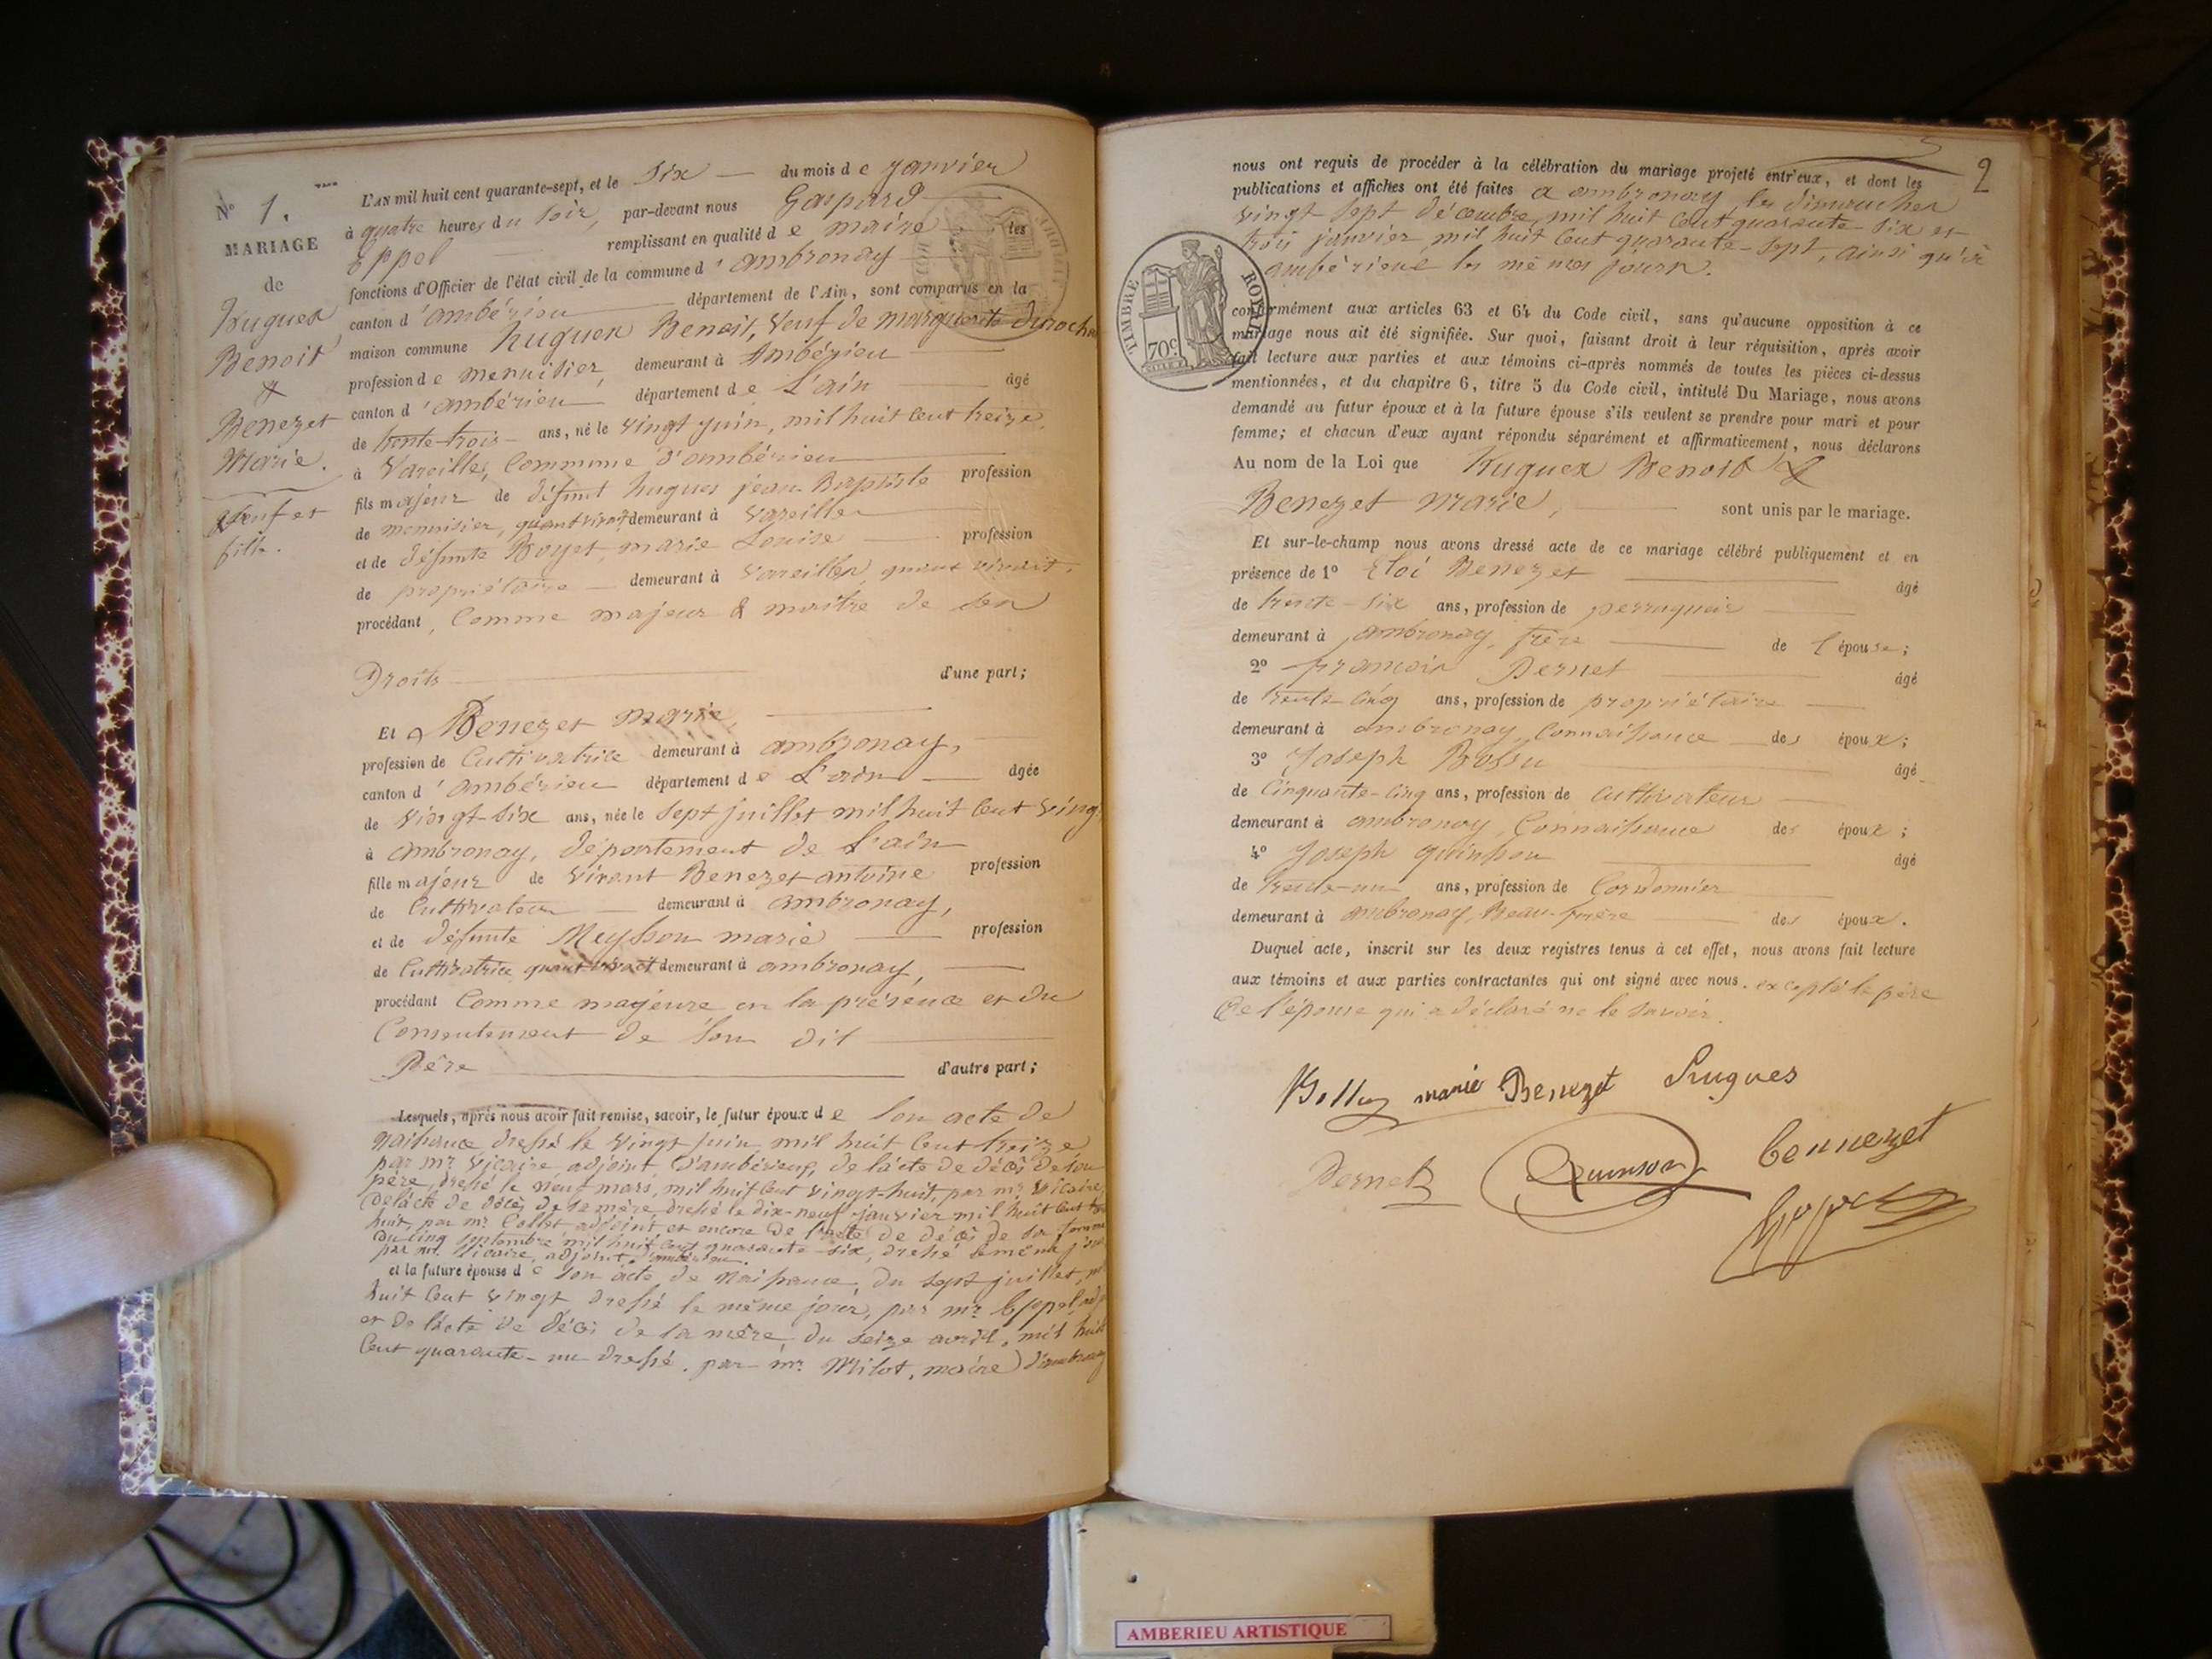 N° 1.
MARIAGE
de
Hugues
Benoit
&
Benezet
Marie.
Veuf et
fille.
L'AN mil huit cent quarante-sept, et le six du mois de janvier
à quatre heures du soir, par-devant nous Gaspard
Eppel remplissant en qualité de maire les
fonctions d'Officier de l'état civil de la commune d'ambronay
canton d'ambérieu département de l'Ain, sont comparus en la
maison commune hugues Benoit, veuf de marguerite
profession de menuisier, demeurant à Ambérieu
canton d'ambérieu département de L'ain âgé
de trente-trois ans, né le vingt juin, mil huit cent treize,
à Vareilles, Commune d'ambérieu
fils majeur de défunt hugues jean Baptiste profession
de menuisier, quant vivait demeurant à Vareilles
et de défunte Boyet marie Louise profession
de propriétaire demeurant à Vareilles, quant vivait,
procédant, Comme majeur & maitre de ses
Droits d'une part;
Et Benezet marie,
profession de Cultivatrice demeurant à ambronay,
canton d'ambérieu département de L'ain âgée
de vingt-six ans, née le sept juillet mil huit cent vingt
à ambronay, département de L'ain
fille majeur de vivant Benezet antoine profession
de Cultivateur demeurant à ambronay,
et de défunte Meysson marie profession
de Cultivatrice quant vivait demeurant à ambronay,
procédant Comme majeure en la présence et du
Consentement de son dit
Père d'autre part;
Lesquels, après nous avoir fait remise, savoir, le futur époux de son acte de
naissance dressé le vingt juin mil huit cent treize
par mr vicaire adjoint, d'ambérieux, de l'acte de décès de son
père, dressé le neuf mars, mil huit cent vingt-huit, par mr vicaire,
de l'acte de décès de sa mère dressé le dix-neuf janvier mil huit cent
huit, par mr Collet adjoint et encore de l'acte de décès de sa femme
du cinq septembre mil huit cent quarante-six, dressé le même jour
par mr vicaire, adjoint d'ambérieu.
et la future épouse de son acte de naissance, du sept juillet, mil
huit cent vingt dressé le même jour, par mr Eppel, adj
et de l'acte de décès de sa mère, du seize avril, mil huit
Cent quarante-un dressé, par mr Milot, maire d'ambronay
2
nous ont requis de procéder à la célébration du mariage projeté entr'eux, et dont les
publications et affiches ont été faites à ambronay, les dimanches
vingt-sept décembre, mil huit cent quarante-six et
trois janvier mil huit cent quarante-sept, ainsi qu'à
ambérieux les mêmes jours.
TIMBRE ROYAL
70c
conformément aux articles 63 et 64 du Code civil, sans qu'aucune opposition à ce
mariage nous ait été signifiée. Sur quoi, faisant droit à leur réquisition, après avoir
fait lecture aux parties et aux témoins ci-après nommés de toutes les pièces ci-dessus
mentionnées, et du chapitre 6, titre 5 du Code civil, intitulé Du Mariage, nous avons
demandé au futur époux et à la future épouse s'ils veulent se prendre pour mari et pour
femme; et chacun d'eux ayant répondu séparément et affirmativement, nous déclarons
Au nom de la Loi que Hugues Benoit &
Benezet marie, sont unis par le mariage.
Et sur-le-champ nous avons dressé acte de ce mariage célébré publiquement et en
présence de 1° Eloi Benezet âgé
de trente-six ans, profession de perruquier
demeurant à ambronay, frère de l'épouse;
2° françois Dernet âgé
de trente-cinq ans, profession de propriétaire
demeurant à ambronay, Connaissance des époux;
3° Joseph Bossu âgé
de Cinquante-cinq ans, profession de Cultivateur
demeurant à ambronay, Connaissance des époux;
4° Joseph quinson âgé
de trente-un ans, profession de Cordonnier
demeurant à ambronay, Beau-frère des époux.
Duquel acte, inscrit sur les deux registres tenus à cet effet, nous avons fait lecture
aux témoins et aux parties contractantes qui ont signé avec nous. excepté le père
de l'épouse qui a déclaré ne le savoir.
marie Benezet Hugues
Dernet Quinson bennezet
AMBERIEU ARTISTIQUE